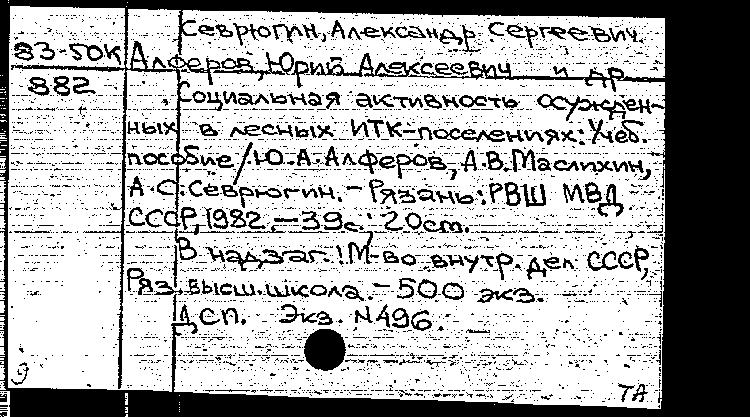 Севрюгин, Александр Сергеевич.
83-50К Алферов, Юрий Алексеевич и др
882 Социальная активность осужден-
ных в лесных ИТК-поселениях: Учеб.
пособие / Ю.А. Алферов, А.В. Маслихин,
А.С. Севрюгин. - Рязань: РВШ МВД
СССР, 1982. - 39с.; 20см.
В надзаг.: М-во внутр. дел СССР,
Ряз. высш. школа. - 500 экз.
ДСП. Экз. N496.
9 ТА